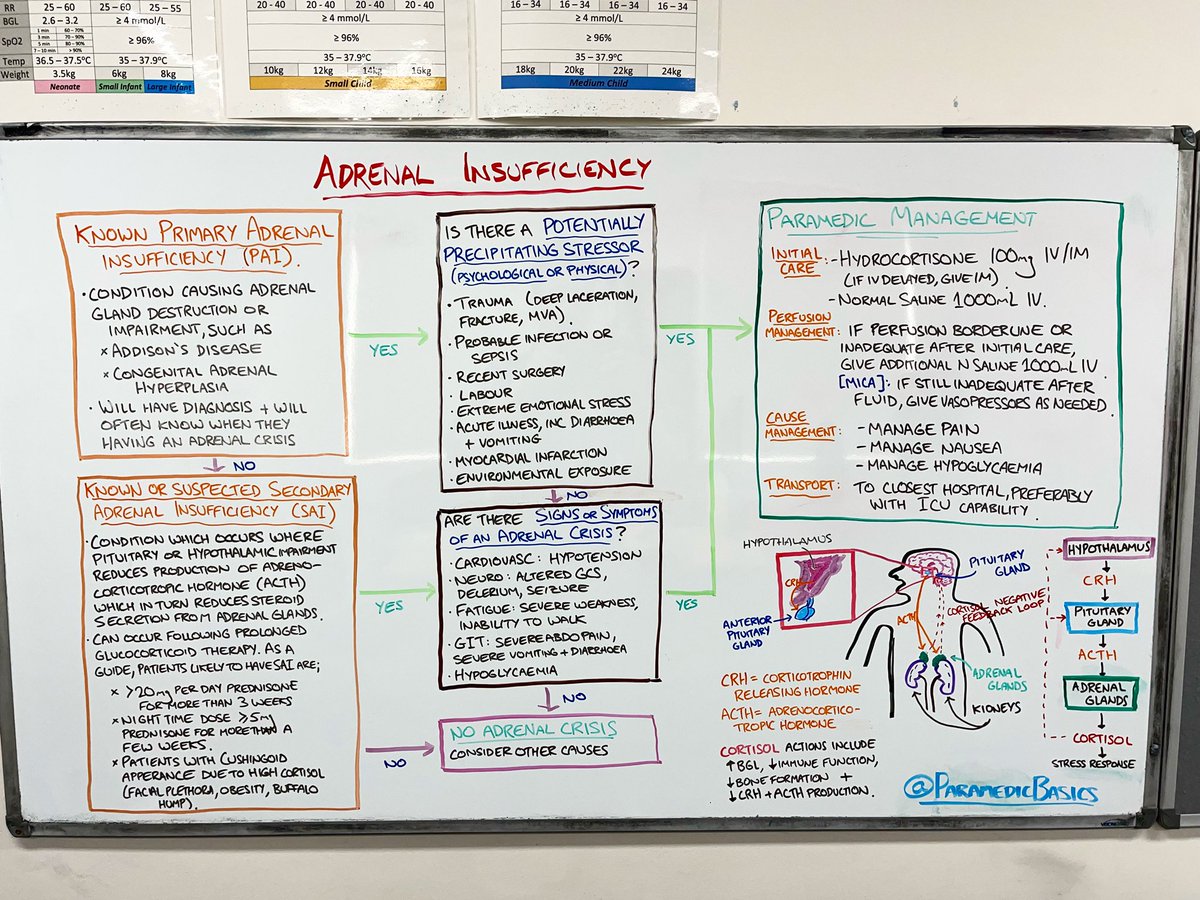 RR 25 – 60 25 – 60 25 – 55
BGL 2.6 – 3.2 ≥ 4 mmol/L
SpO2 1 min 60 – 70% ≥ 96%
3 min 70 – 90%
5 min 80 – 90%
7 – 10 min > 90%
Temp 36.5 – 37.5°C 35 – 37.9°C
Weight 3.5kg 6kg 8kg
Neonate Small Infant Large Infant
20 - 40 20 - 40 20 - 40 20 - 40
≥ 4 mmol/L
≥ 96%
35 – 37.9°C
10kg 12kg 14kg 16kg
Small Child
16 – 34 16 – 34 16 – 34 16 – 34
≥ 4 mmol/L
≥ 96%
35 – 37.9°C
18kg 20kg 22kg 24kg
Medium Child
ADRENAL INSUFFICIENCY
KNOWN PRIMARY ADRENAL
INSUFFICIENCY (PAI).
• CONDITION CAUSING ADRENAL
GLAND DESTRUCTION OR
IMPAIRMENT, SUCH AS
× ADDISON'S DISEASE
× CONGENITAL ADRENAL
HYPERPLASIA
• WILL HAVE DIAGNOSIS + WILL
OFTEN KNOW WHEN THEY
HAVING AN ADRENAL CRISIS
YES
NO
KNOWN OR SUSPECTED SECONDARY
ADRENAL INSUFFICIENCY (SAI)
• CONDITION WHICH OCCURS WHERE
PITUITARY OR HYPOTHALAMIC IMPAIRMENT
REDUCES PRODUCTION OF ADRENO-
CORTICOTROPIC HORMONE (ACTH)
WHICH IN TURN REDUCES STEROID
SECRETION FROM ADRENAL GLANDS.
• CAN OCCUR FOLLOWING PROLONGED
GLUCOCORTICOID THERAPY. AS A
GUIDE, PATIENTS LIKELY TO HAVE SAI ARE;
× >20mg PER DAY PREDNISONE
FOR MORE THAN 3 WEEKS
× NIGHT TIME DOSE ≥5mg
PREDNISONE FOR MORE THAN A
FEW WEEKS.
× PATIENTS WITH CUSHINGOID
APPERANCE DUE TO HIGH CORTISOL
(FACIAL PLETHORA, OBESITY, BUFFALO
HUMP).
YES
NO
IS THERE A POTENTIALLY
PRECIPITATING STRESSOR
(PSYCHOLOGICAL OR PHYSICAL)?
• TRAUMA (DEEP LACERATION,
FRACTURE, MVA).
• PROBABLE INFECTION OR
SEPSIS
• RECENT SURGERY
• LABOUR
• EXTREME EMOTIONAL STRESS
• ACUTE ILLNESS, INC DIARRHOEA
+ VOMITING
• MYOCARDIAL INFARCTION
• ENVIRONMENTAL EXPOSURE
YES
NO
ARE THERE SIGNS OR SYMPTOMS
OF AN ADRENAL CRISIS?
• CARDIOVASC: HYPOTENSION
• NEURO: ALTERED GCS,
DELERIUM, SEIZURE
• FATIGUE: SEVERE WEAKNESS,
INABILITY TO WALK
• GIT: SEVERE ABDO PAIN,
SEVERE VOMITING + DIARRHOEA
• HYPOGLYCAEMIA
YES
NO
NO ADRENAL CRISIS
CONSIDER OTHER CAUSES
PARAMEDIC MANAGEMENT
INITIAL CARE: - HYDROCORTISONE 100mg IV/IM
(IF IV DELAYED, GIVE IM)
- NORMAL SALINE 1000mL IV.
PERFUSION MANAGEMENT: IF PERFUSION BORDERLINE OR
INADEQUATE AFTER INITIAL CARE,
GIVE ADDITIONAL N SALINE 1000mL IV
[MICA]: IF STILL INADEQUATE AFTER
FLUID, GIVE VASOPRESSORS AS NEEDED.
CAUSE MANAGEMENT: - MANAGE PAIN
- MANAGE NAUSEA
- MANAGE HYPOGLYCAEMIA
TRANSPORT: TO CLOSEST HOSPITAL, PREFERABLY
WITH ICU CAPABILITY.
HYPOTHALAMUS
CRH
ANTERIOR
PITUITARY
GLAND
PITUITARY
GLAND
ACTH
CORTISOL NEGATIVE
FEEDBACK LOOP
ADRENAL
GLANDS
KIDNEYS
CRH = CORTICOTROPHIN
RELEASING HORMONE
ACTH = ADRENOCORTICO-
TROPIC HORMONE
CORTISOL ACTIONS INCLUDE
↑BGL, ↓IMMUNE FUNCTION,
↓BONE FORMATION +
↓CRH + ACTH PRODUCTION.
HYPOTHALAMUS
CRH
PITUITARY
GLAND
ACTH
ADRENAL
GLANDS
CORTISOL
STRESS RESPONSE
@PARAMEDICBASICS